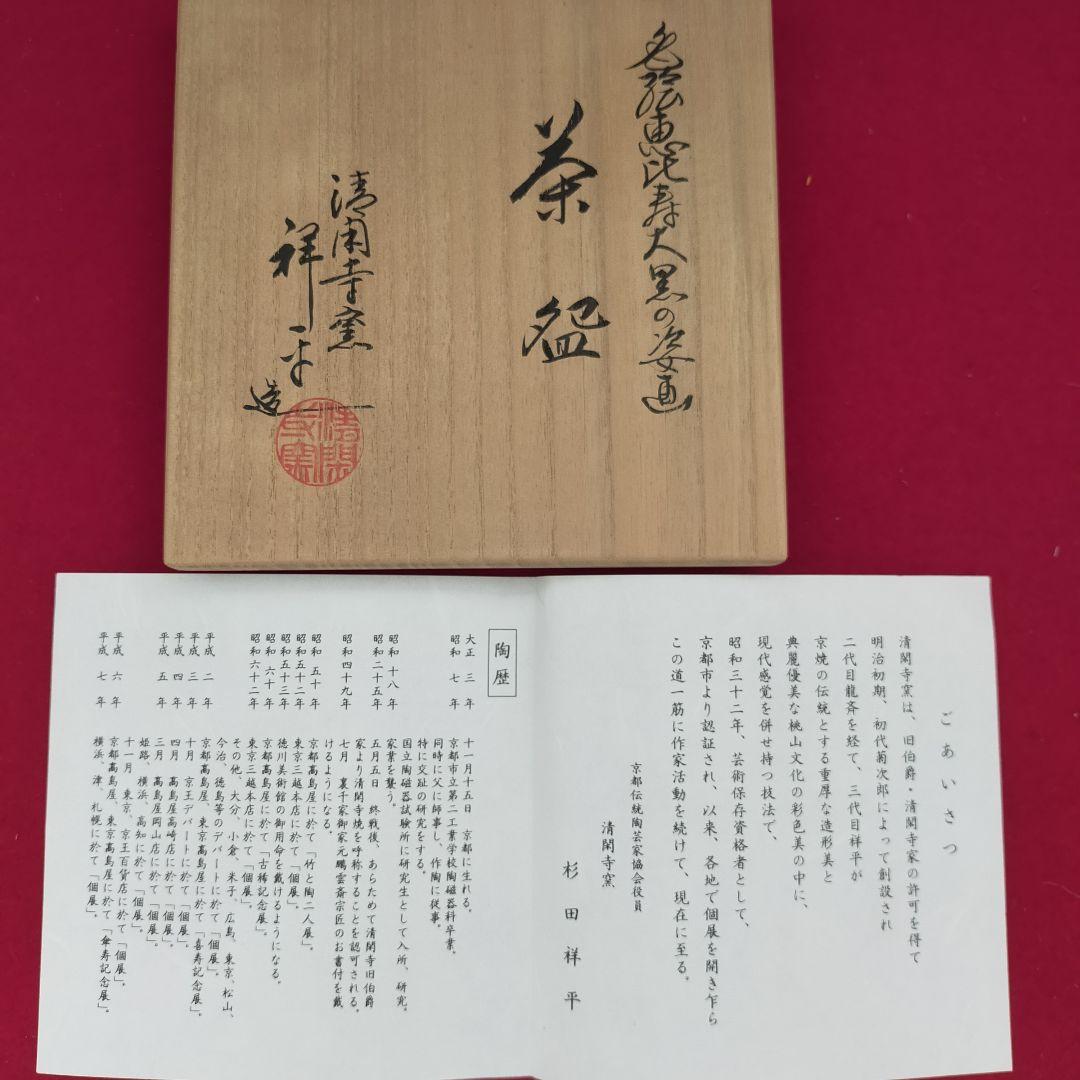 色絵恵比寿大黒の姿画
茶盌
清閑寺窯
祥平
造
清閑寺窯
ごあいさつ
清閑寺窯は、旧伯爵・清閑寺家の許可を得て、
明治初期、初代菊次郎によって創設され
二代目龍斉を経て、三代目祥平が
京焼の伝統とする重厚な造形美と
典麗優美な桃山文化の彩色美の中に、
現代感覚を併せ持つ技法で、
昭和三十二年、芸術保存資格者として、
京都市より認証され、以来、各地で個展を開き乍ら
この道一筋に作家活動を続けて、現在に至る。
京都伝統陶芸家協会役員
清閑寺窯
杉田祥平
陶歴
大正三年 十一月十五日 京都に生れる。
昭和七年 京都市立第二工業学校陶磁器科卒業。
同時に父に師事し、作陶に従事。
特に交趾の研究をする。
昭和十八年 国立陶磁器試験所に研究生として入所、研究。
家業を襲う。
昭和二十五年 五月五日 終戦後、あらためて清閑寺旧伯爵
家より清閑寺焼を呼称することを認可される。
昭和四十九年 七月 裏千家御家元鵬雲斎宗匠のお書付を戴
けるようになる。
昭和五十年 京都高島屋に於て「竹と陶二人展」。
昭和五十二年 東京三越本店に於て「個展」。
昭和五十三年 徳川美術館の御用命を戴けるようになる。
昭和六十年 京都高島屋に於て「古稀記念展」。
昭和六十二年 東京三越本店に於て「個展」。
その他、大分、小倉、米子、広島、東京、松山、
今治、徳島等のデパートにて「個展」。
平成二年 京都高島屋、東京高島屋に於て「喜寿記念展」。
平成三年 十月 京王デパートに於て「個展」。
平成四年 四月 高島屋高崎店に於て「個展」。
平成五年 三月 高島屋岡山店に於て「個展」。
姫路、横浜、高知に於て「個展」。
平成六年 十一月 東京、京王百貨店に於て「個展」。
京都高島屋、東京高島屋に於て「傘寿記念展」。
平成七年 横浜、津、札幌に於て「個展」。